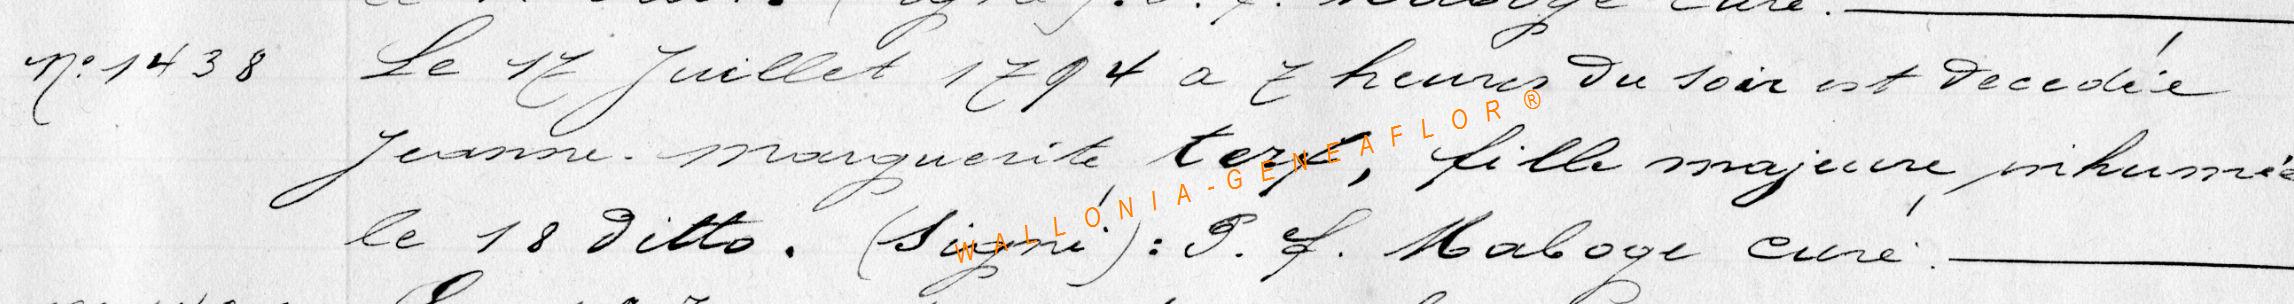 Maboge curé.
n° 1438 Le 17 Juillet 1794 a 7 heures du soir est décedée
Jeanne-marguerite terf, fille majeure, inhumée
le 18 ditto. (signé): P. f. Maboge curé.
WALLONIA-GENEAFLOR®